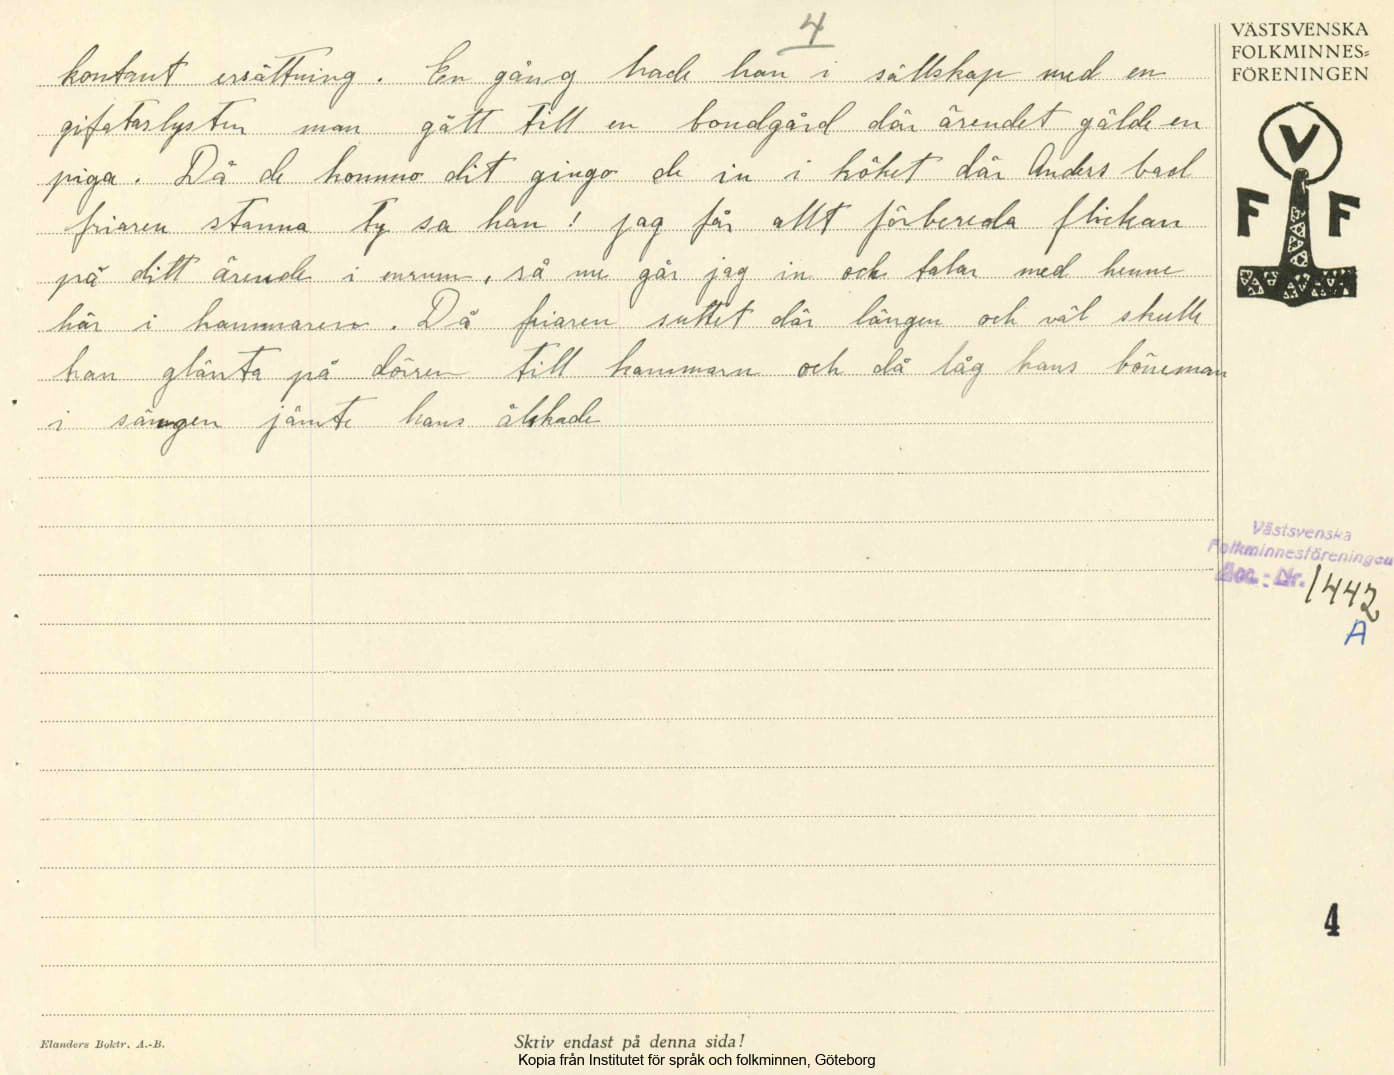 4
kontant ersättning. En gång hade han i sällskap med en
giftaslysten man gått till en bondgård där ärendet gälde en
piga. Då de kommo dit gingo de in i köket där Anders bad
friaren stanna ty sa han! jag får allt förbereda flickan
på ditt ärende i enrum, så nu går jag in och talar med henne
här i kammaren. Då friaren suttet där längen och väl skulle
han glänta på dörren till kammarn och då låg hans böneman
i sängen jämte hans älskade
VÄSTSVENSKA
FOLKMINNES=
FÖRENINGEN
V
F F
Västsvenska
Folkminnesföreningen
Acc.-Nr. 1442
A
4
Elanders Boktr. A.-B.
Skriv endast på denna sida!
Kopia från Institutet för språk och folkminnen, Göteborg